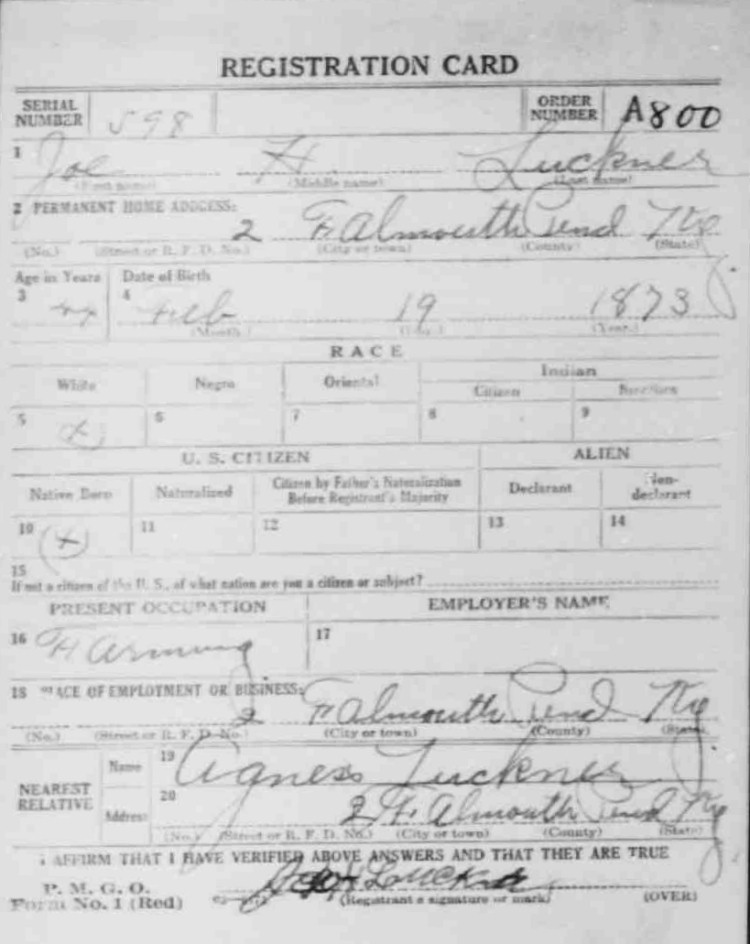 REGISTRATION CARD
SERIAL NUMBER 598 ORDER NUMBER A800
1 Joe H Luckner
(First name) (Middle name) (Last name)
2 PERMANENT HOME ADDRESS:
2 Falmouth Pend Ky
(No.) (Street or R. F. D. No.) (City or town) (County) (State)
Age in Years Date of Birth
3 4 Feb 19 1873
(Month) (Day) (Year)
RACE
White Negro Oriental Indian
Citizen Noncitizen
5 X 6 7 8 9
U. S. CITIZEN ALIEN
Native Born Naturalized Citizen by Father's Naturalization Before Registrant's Majority Declarant Non-declarant
10 X 11 12 13 14
15
If not a citizen of the U. S., of what nation are you a citizen or subject?
PRESENT OCCUPATION EMPLOYER'S NAME
16 Farming 17
18 PLACE OF EMPLOYMENT OR BUSINESS:
2 Falmouth Pend Ky
(No.) (Street or R. F. D. No.) (City or town) (County) (State)
NEAREST RELATIVE Name 19 Agness Luckner
Address 20 2 Falmouth Pend Ky
(No.) (Street or R. F. D. No.) (City or town) (County) (State)
I AFFIRM THAT I HAVE VERIFIED ABOVE ANSWERS AND THAT THEY ARE TRUE
P. M. G. O.
Form No. 1 (Red) (Registrant's signature or mark) (OVER)